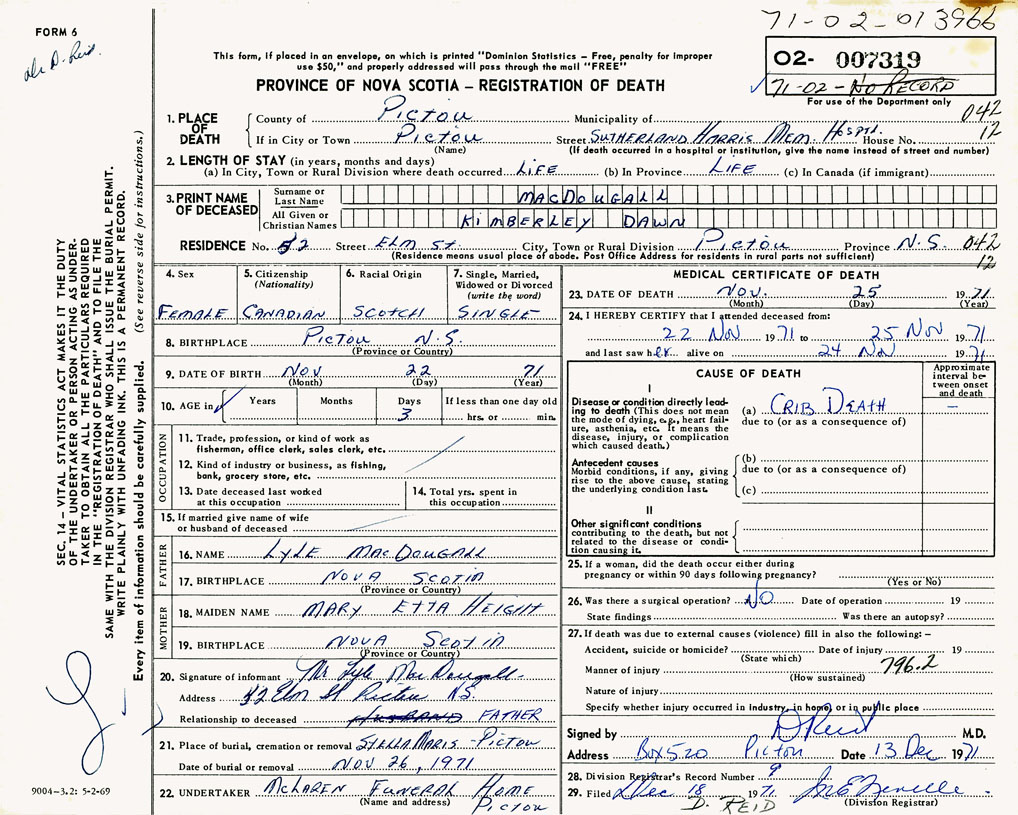 71-02-013966
FORM 6
Dr D. Reid.
O2- 007319
71-02-No RECORD
For use of the Department only
This form, if placed in an envelope, on which is printed "Dominion Statistics – Free, penalty for improper
use $50," and properly addressed will pass through the mail "FREE"
PROVINCE OF NOVA SCOTIA – REGISTRATION OF DEATH
1. PLACE OF DEATH
County of Pictou Municipality of 042
If in City or Town Pictou Street SUTHERLAND HARRIS MEM. HOSPTL. House No. 12
(Name) (If death occurred in a hospital or institution, give the name instead of street and number)
2. LENGTH OF STAY (in years, months and days)
(a) In City, Town or Rural Division where death occurred LIFE (b) In Province LIFE (c) In Canada (if immigrant)
3. PRINT NAME OF DECEASED
Surname or Last Name MACDOUGALL
All Given or Christian Names KIMBERLEY DAWN
RESIDENCE No. 52 Street ELM St. City, Town or Rural Division Pictou Province N.S. 042
(Residence means usual place of abode. Post Office Address for residents in rural parts not sufficient) 12
4. Sex FEMALE
5. Citizenship (Nationality) CANADIAN
6. Racial Origin SCOTCH
7. Single, Married, Widowed or Divorced (write the word) SINGLE
8. BIRTHPLACE PICTOU N.S.
(Province or Country)
9. DATE OF BIRTH NOV 22 71
(Month) (Day) (Year)
10. AGE in Years Months Days 3 If less than one day old hrs. or min.
OCCUPATION
11. Trade, profession, or kind of work as
fisherman, office clerk, sales clerk, etc.
12. Kind of industry or business, as fishing,
bank, grocery store, etc.
13. Date deceased last worked
at this occupation
14. Total yrs. spent in
this occupation
15. If married give name of wife
or husband of deceased
FATHER
16. NAME LYLE MACDOUGALL
17. BIRTHPLACE NOVA SCOTIA
(Province or Country)
MOTHER
18. MAIDEN NAME MARY ETTA HEIGHT
19. BIRTHPLACE NOVA SCOTIA
(Province or Country)
20. Signature of informant Mr Lyle MacDougall.
Address 42 Elm St Pictou N.S.
Relationship to deceased HUSBAND FATHER
21. Place of burial, cremation or removal STELLA MARIS - PICTOU
Date of burial or removal NOV 26, 1971
22. UNDERTAKER McLAREN FUNERAL HOME
(Name and address) PICTOU
MEDICAL CERTIFICATE OF DEATH
23. DATE OF DEATH NOV. 25 1971
(Month) (Day) (Year)
24. I HEREBY CERTIFY that I attended deceased from:
22 NOV 1971 to 25 NOV 1971
and last saw her alive on 24 NOV 1971
CAUSE OF DEATH
Approximate interval be-tween onset and death
I
Disease or condition directly lead-
ing to death (This does not mean
the mode of dying, e.g., heart fail-
ure, asthenia, etc. It means the
disease, injury, or complication
which caused death.)
(a) CRIB DEATH –
due to (or as a consequence of)
Antecedent causes
Morbid conditions, if any, giving
rise to the above cause, stating
the underlying condition last.
(b)
due to (or as a consequence of)
(c)
II
Other significant conditions
contributing to the death, but not
related to the disease or condi-
tion causing it.
25. If a woman, did the death occur either during
pregnancy or within 90 days following pregnancy?
(Yes or No)
26. Was there a surgical operation? NO Date of operation 19
State findings Was there an autopsy?
27. If death was due to external causes (violence) fill in also the following: –
Accident, suicide or homicide? Date of injury 19
(State which)
Manner of injury 796.2
(How sustained)
Nature of injury
Specify whether injury occurred in industry, in home, or in public place
Signed by D Reid M.D.
Address Box 520 Pictou Date 13 Dec 1971
28. Division Registrar's Record Number 9
29. Filed Dec 18 1971
D. REID (Division Registrar)
SEC. 14 – VITAL STATISTICS ACT MAKES IT THE DUTY
OF THE UNDERTAKER OR PERSON ACTING AS UNDER-
TAKER TO OBTAIN ALL THE PARTICULARS REQUIRED
IN THE "REGISTRATION OF DEATH" AND TO FILE THE
SAME WITH THE DIVISION REGISTRAR WHO SHALL ISSUE THE BURIAL PERMIT.
WRITE PLAINLY WITH UNFADING INK. THIS IS A PERMANENT RECORD.
Every item of information should be carefully supplied. (See reverse side for instructions.)
9004-3.2: 5-2-69